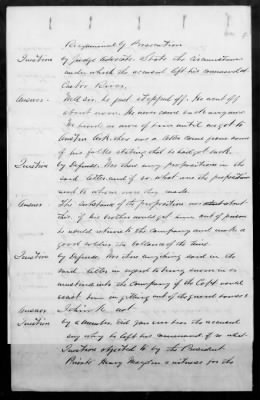 Reexamined by Prosecution
Question by Judge Advocate. State the circumstances
under which the accused left his command at
Answer. Well sir, he just stepped off. He went off
about noon. He never came back anymore
He never any of him until we got to
Ark. there was a letter came from some
of his folks stating that he had got back.
Question by Defense. Was there any proposition in the
said letter and if so, what was the proposition
and to whom was they made.
Answer. The substance of the proposition was about
this. if his brother would get him out of prison
he would return to the company and make a
good soldier the balance of the time.
Question by Defense. Was there anything said in the
said letter in regard to being sworn in or
mustered into the Company of the Capt would
assist him in getting out of the guard house?
Answer I think not
Question by a member. Did you ever hear the accused
say why he left his command if so what
Question objected to by the President
Private Henry a witness for the